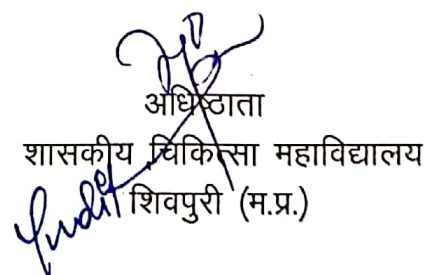 अधिष्ठाता
शासकीय चिकित्सा महाविद्यालय
शिवपुरी (म.प्र.)